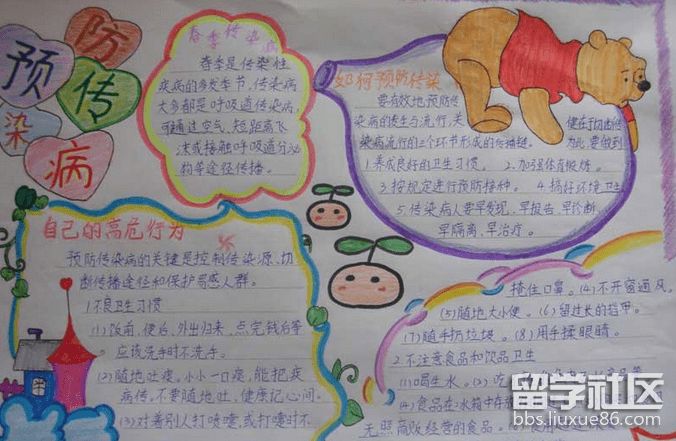 预防传染病
春季传染病
春季是传染性
疾病的多发季节,传染病
大多都是呼吸道传染病,
可通过空气、短距离飞
沫或接触呼吸道分泌
物等途径传播。
如何预防传染
要有效地预防传
染病的发生与流行,关
键在于切断传
染病流行的三个环节形成的传播链。
为此,要做到
1.养成良好的卫生习惯。 2.加强体育锻炼。
3.按规定进行预防接种。 4.搞好环境卫生
5.传染病人要早发现、早报告、早诊断、
早隔离、早治疗。
自己的高危行为
预防传染病的关键是控制传染源、切
断传播途径和保护易感人群。
1.不良卫生习惯
(1)饭前、便后、外出归来、点完钱后等
应该洗手时不洗手。
(2)随地吐痰。小小一口痰,能把疾
病传,不要随地吐,健康记心间。
(3)对着别人打喷嚏,或打嚏时不
捂住口罩。(4)不开窗通风。
(5)随地大小便。(6)留过长的指甲。
(7)随手扔垃圾。(8)用手揉眼睛。
2.不注意食品和饮品卫生
(1)喝生水。(2)吃
(4)食品在冰箱中存
无照商贩经营的食品。
留学社区
bbs.liuxue86.com